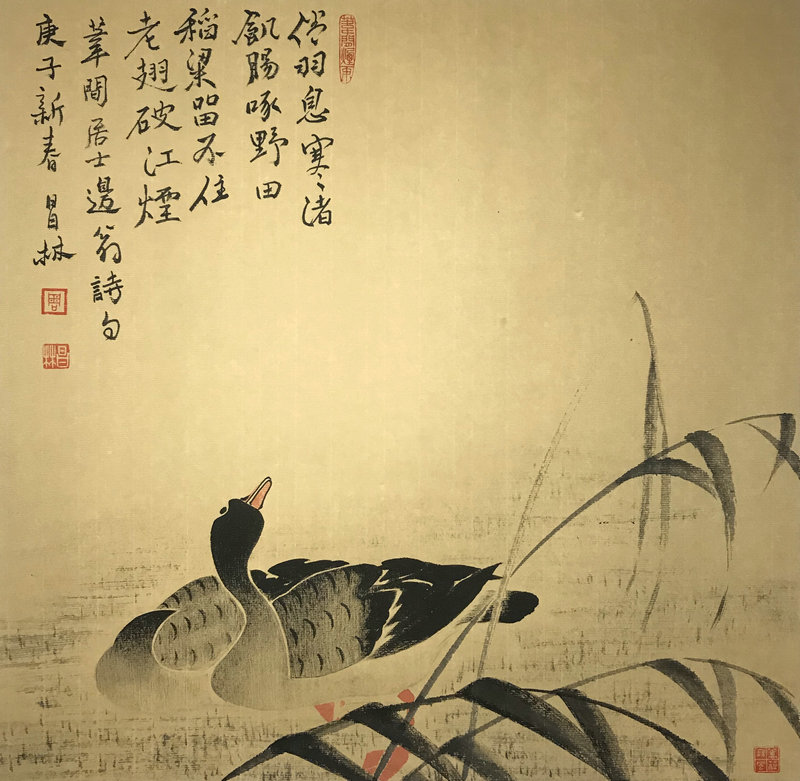 倦羽息寒渚
飢腸啄野田
稻粱留不住
老翅破江煙
葦間居士邊翁詩句
庚子新春 昌林
周
昌林